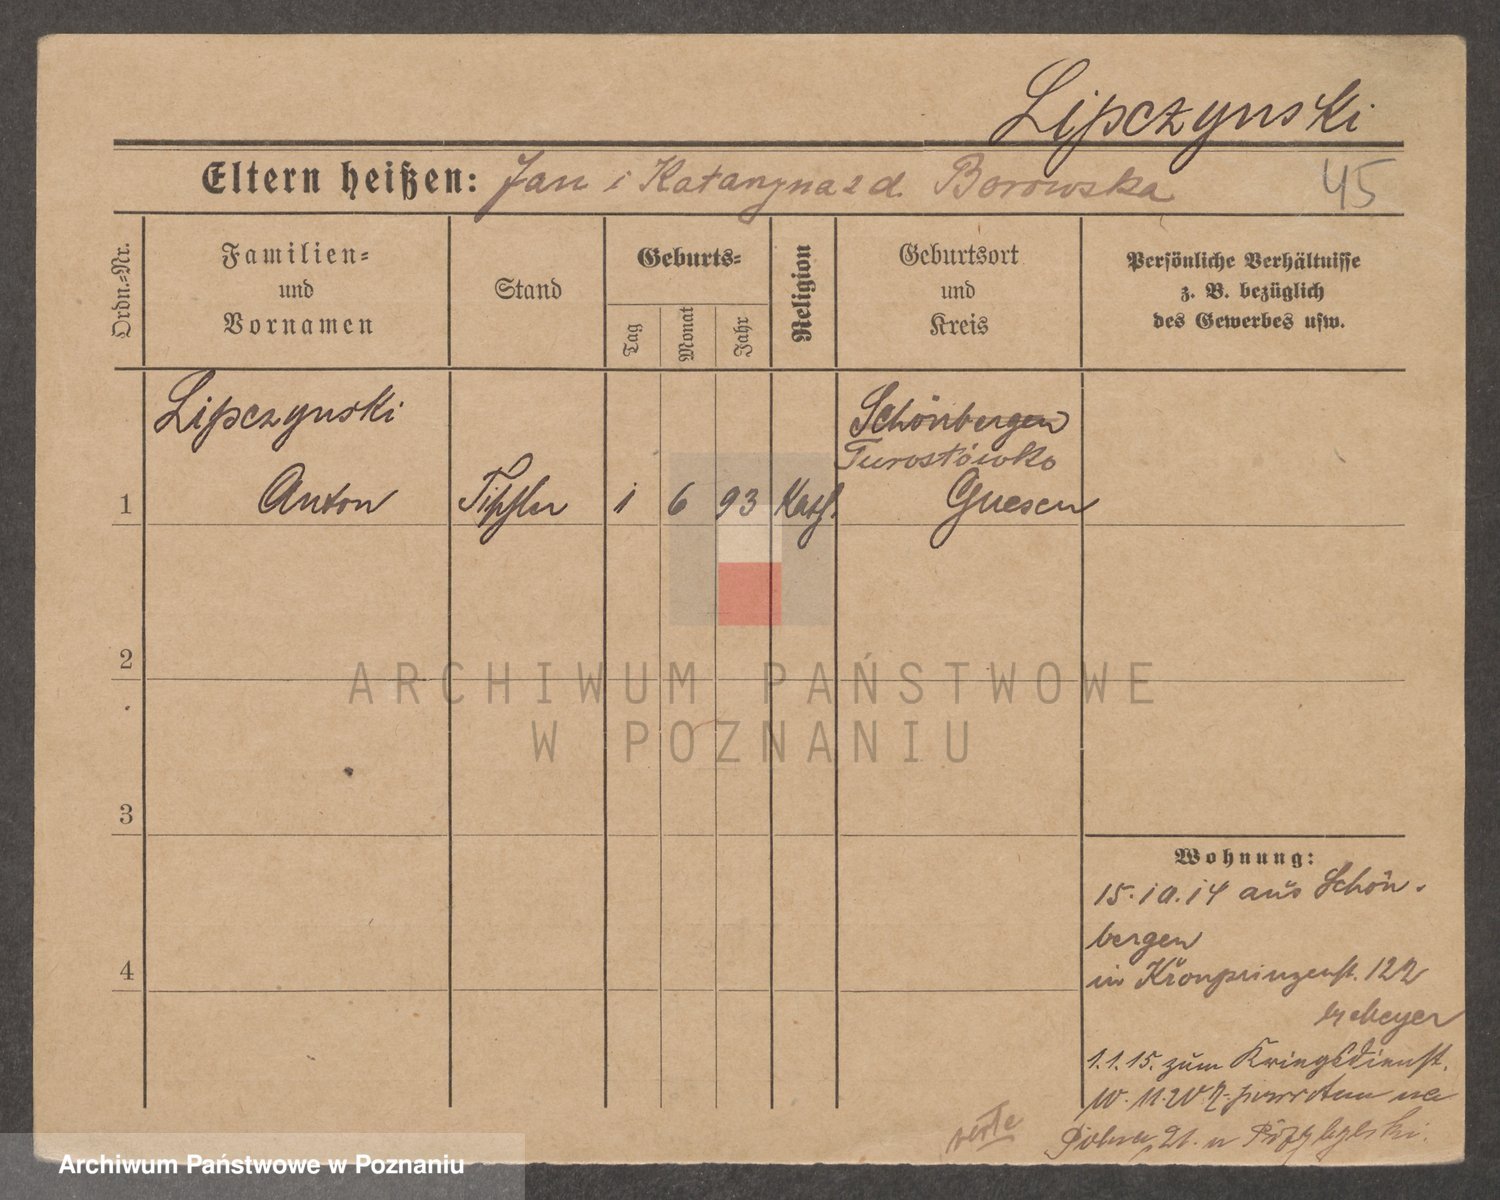 Lipczynski
Eltern heißen: Jan i Katarzyna z d. Borowska
45
Ordn.-Nr.
Familien- und Vornamen
Stand
Geburts-
Tag
Monat
Jahr
Religion
Geburtsort und Kreis
Persönliche Verhältnisse z. B. bezüglich des Gewerbes usw.
Lipczynski
Schönbergen
Turostówko
1 Anton Tischler 1 6 93 Kath. Gnesen
2
ARCHIWUM PAŃSTWOWE
W POZNANIU
3
Wohnung:
15.10.14 aus Schön-
bergen
4
in Kronprinzenst. 122
b/ Meyer
1.1.15. zum Kriegsdienst.
na
verte
21. u
Archiwum Państwowe w Poznaniu